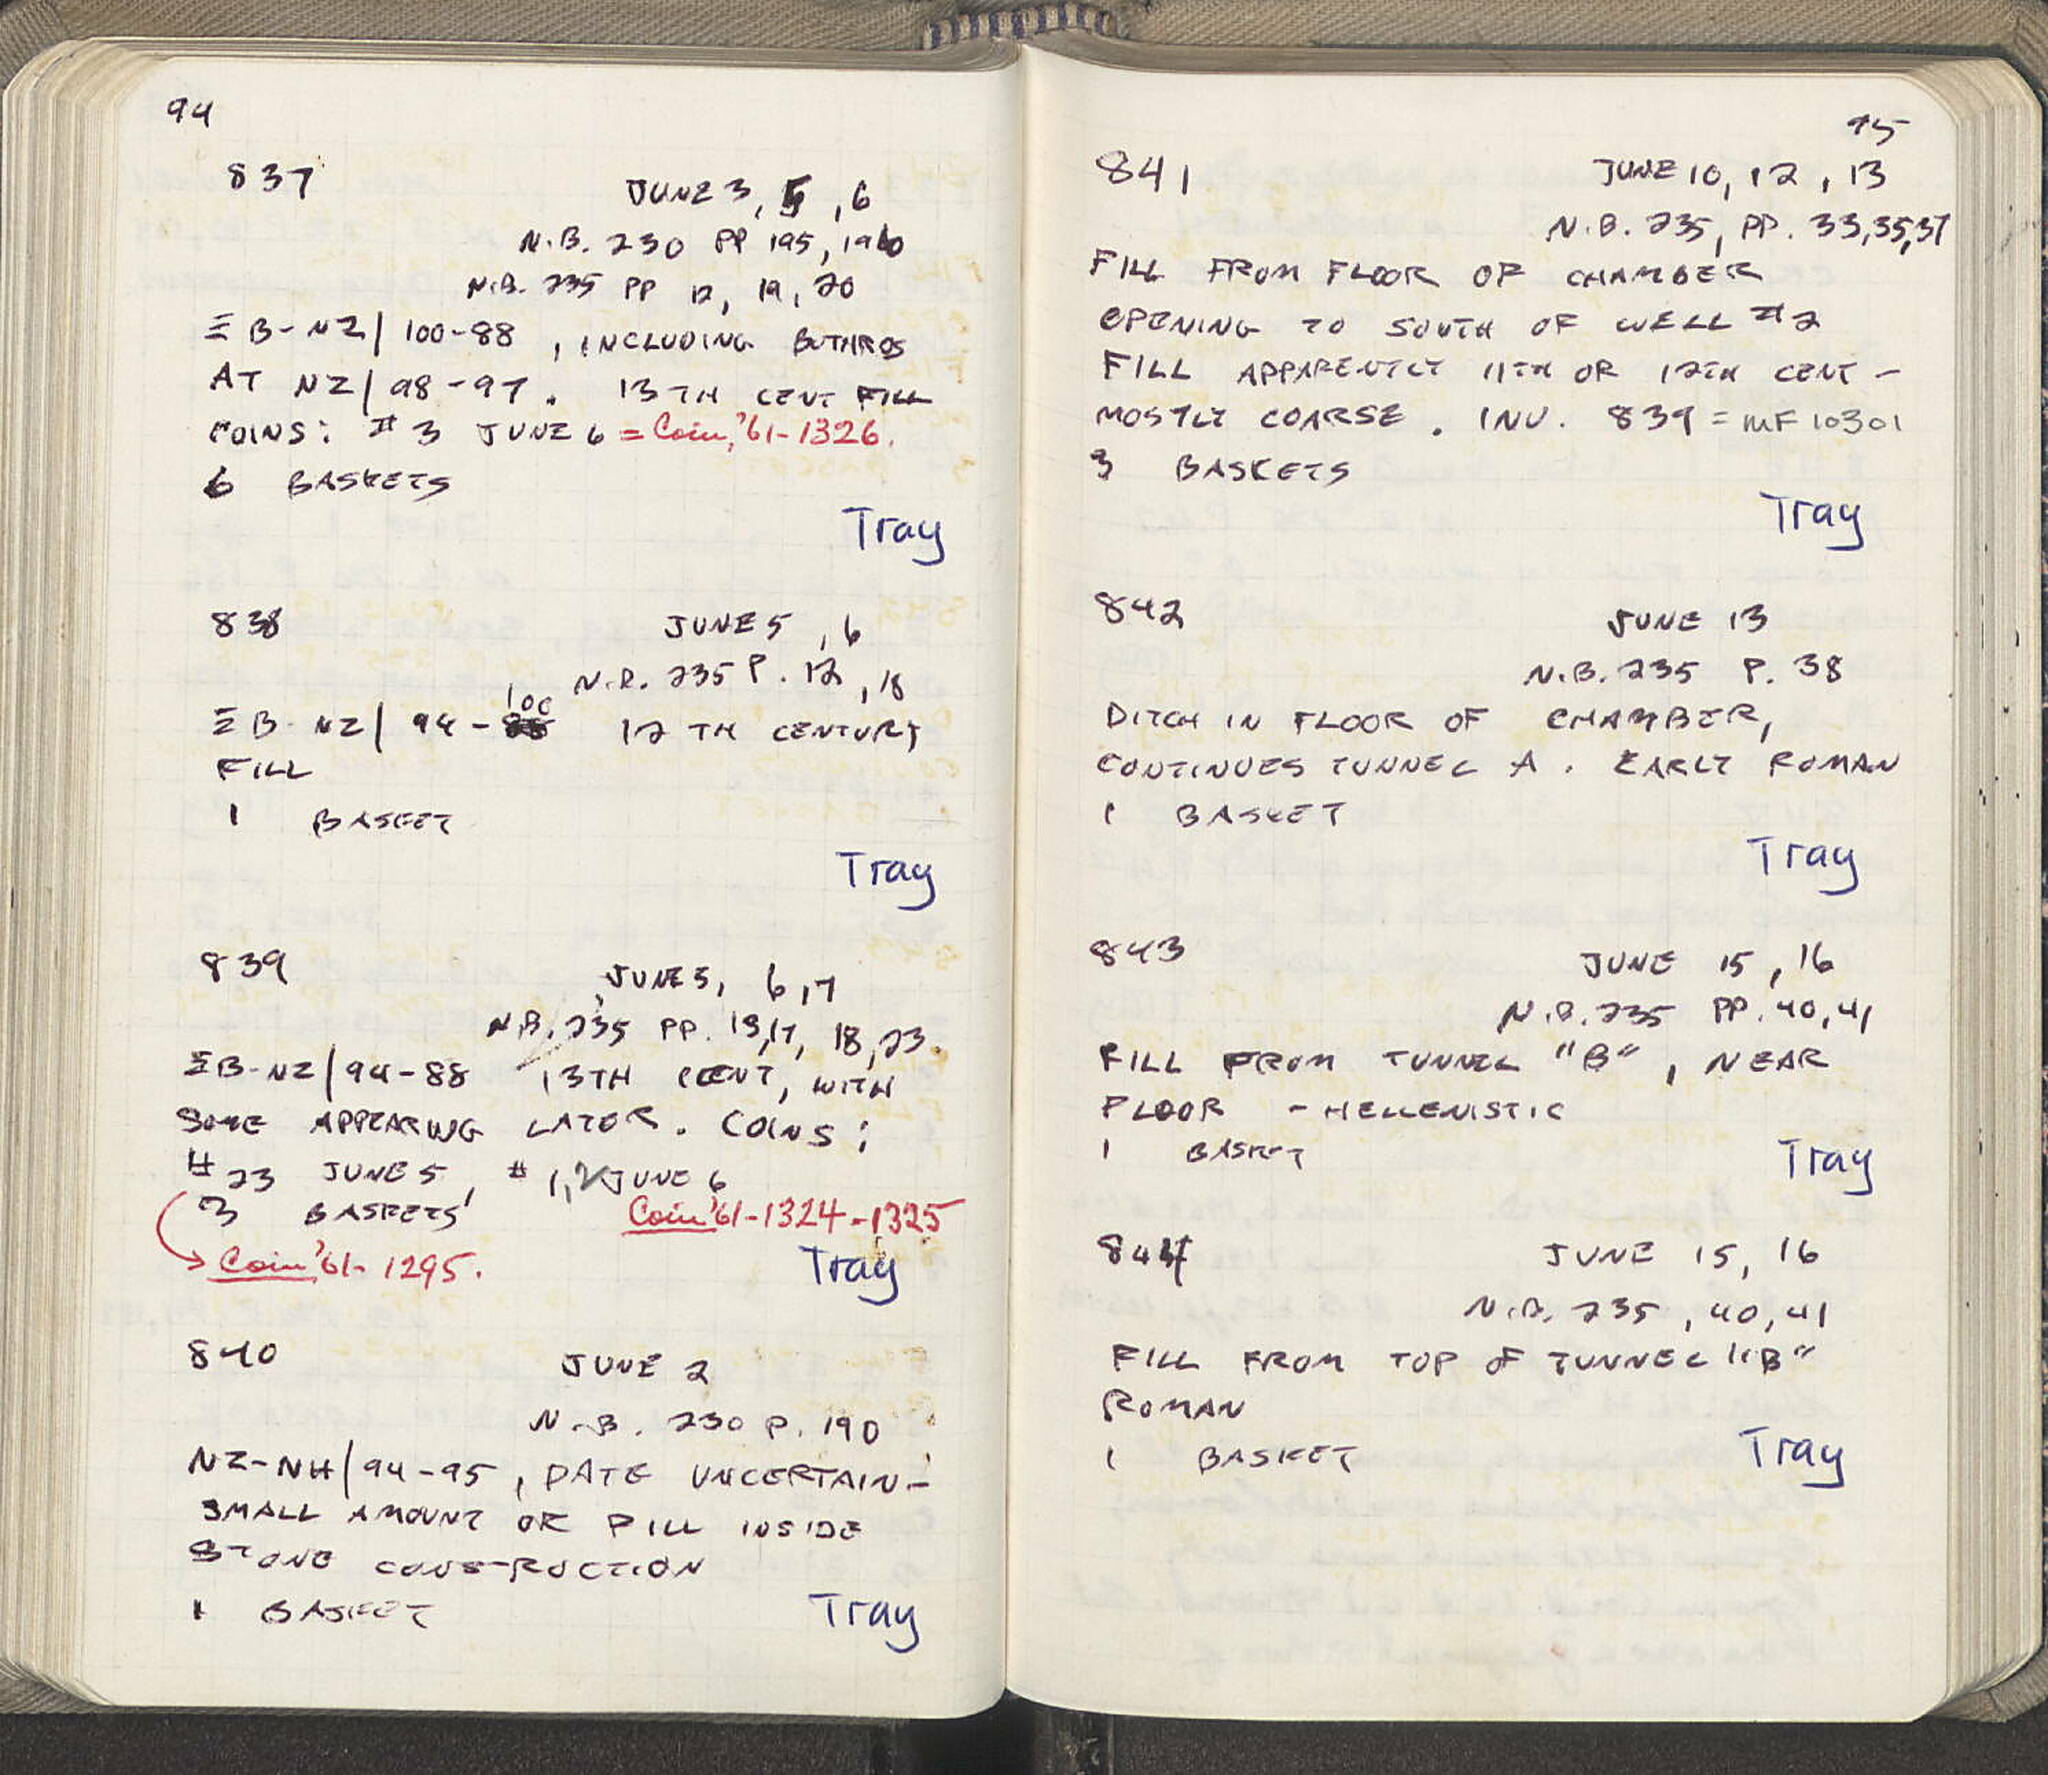 94
837
JUNE 3, 5, 6
N.B. 230 PP 195, 196
N.B. 235 PP 12, 19, 20
ΞB-NZ/100-88, INCLUDING BOTHROS
AT NZ/98-97. 13TH CENT FILL
COINS: #3 JUNE 6 = Coin, '61-1326.
6 BASKETS
Tray
838
JUNE 5, 6
N.B. 235 P. 12, 18
100
ΞB-NZ/94-88 12TH CENTURY
FILL
1 BASKET
Tray
839
JUNE 5, 6, 7
N.B. 235 PP. 13, 17, 18, 23.
ΞB-NZ/94-88 13TH CENT, WITH
SOME APPEARING LATER. COINS:
#23 JUNE 5, #1,2 JUNE 6
3 BASKETS Coin '61-1324-1325
Coin '61-1295.
Tray
840
JUNE 2
N.B. 230 P. 190
NZ-NH/94-95, DATE UNCERTAIN-
SMALL AMOUNT OF FILL INSIDE
STONE CONSTRUCTION
1 BASKET
Tray
95
841
JUNE 10, 12, 13
N.B. 235, PP. 33,35,37
FILL FROM FLOOR OF CHAMBER
OPENING TO SOUTH OF WELL #2
FILL APPARENTLY 11TH OR 12TH CENT-
MOSTLY COARSE. INV. 839 = MF 10301
3 BASKETS
Tray
842
JUNE 13
N.B. 235 P. 38
DITCH IN FLOOR OF CHAMBER,
CONTINUES TUNNEL A. EARLY ROMAN
1 BASKET
Tray
843
JUNE 15, 16
N.B. 235 PP. 40, 41
FILL FROM TUNNEL "B", NEAR
FLOOR - HELLENISTIC
1 BASKET
Tray
844
JUNE 15, 16
N.B. 235, 40, 41
FILL FROM TOP OF TUNNEL "B"
ROMAN
1 BASKET
Tray